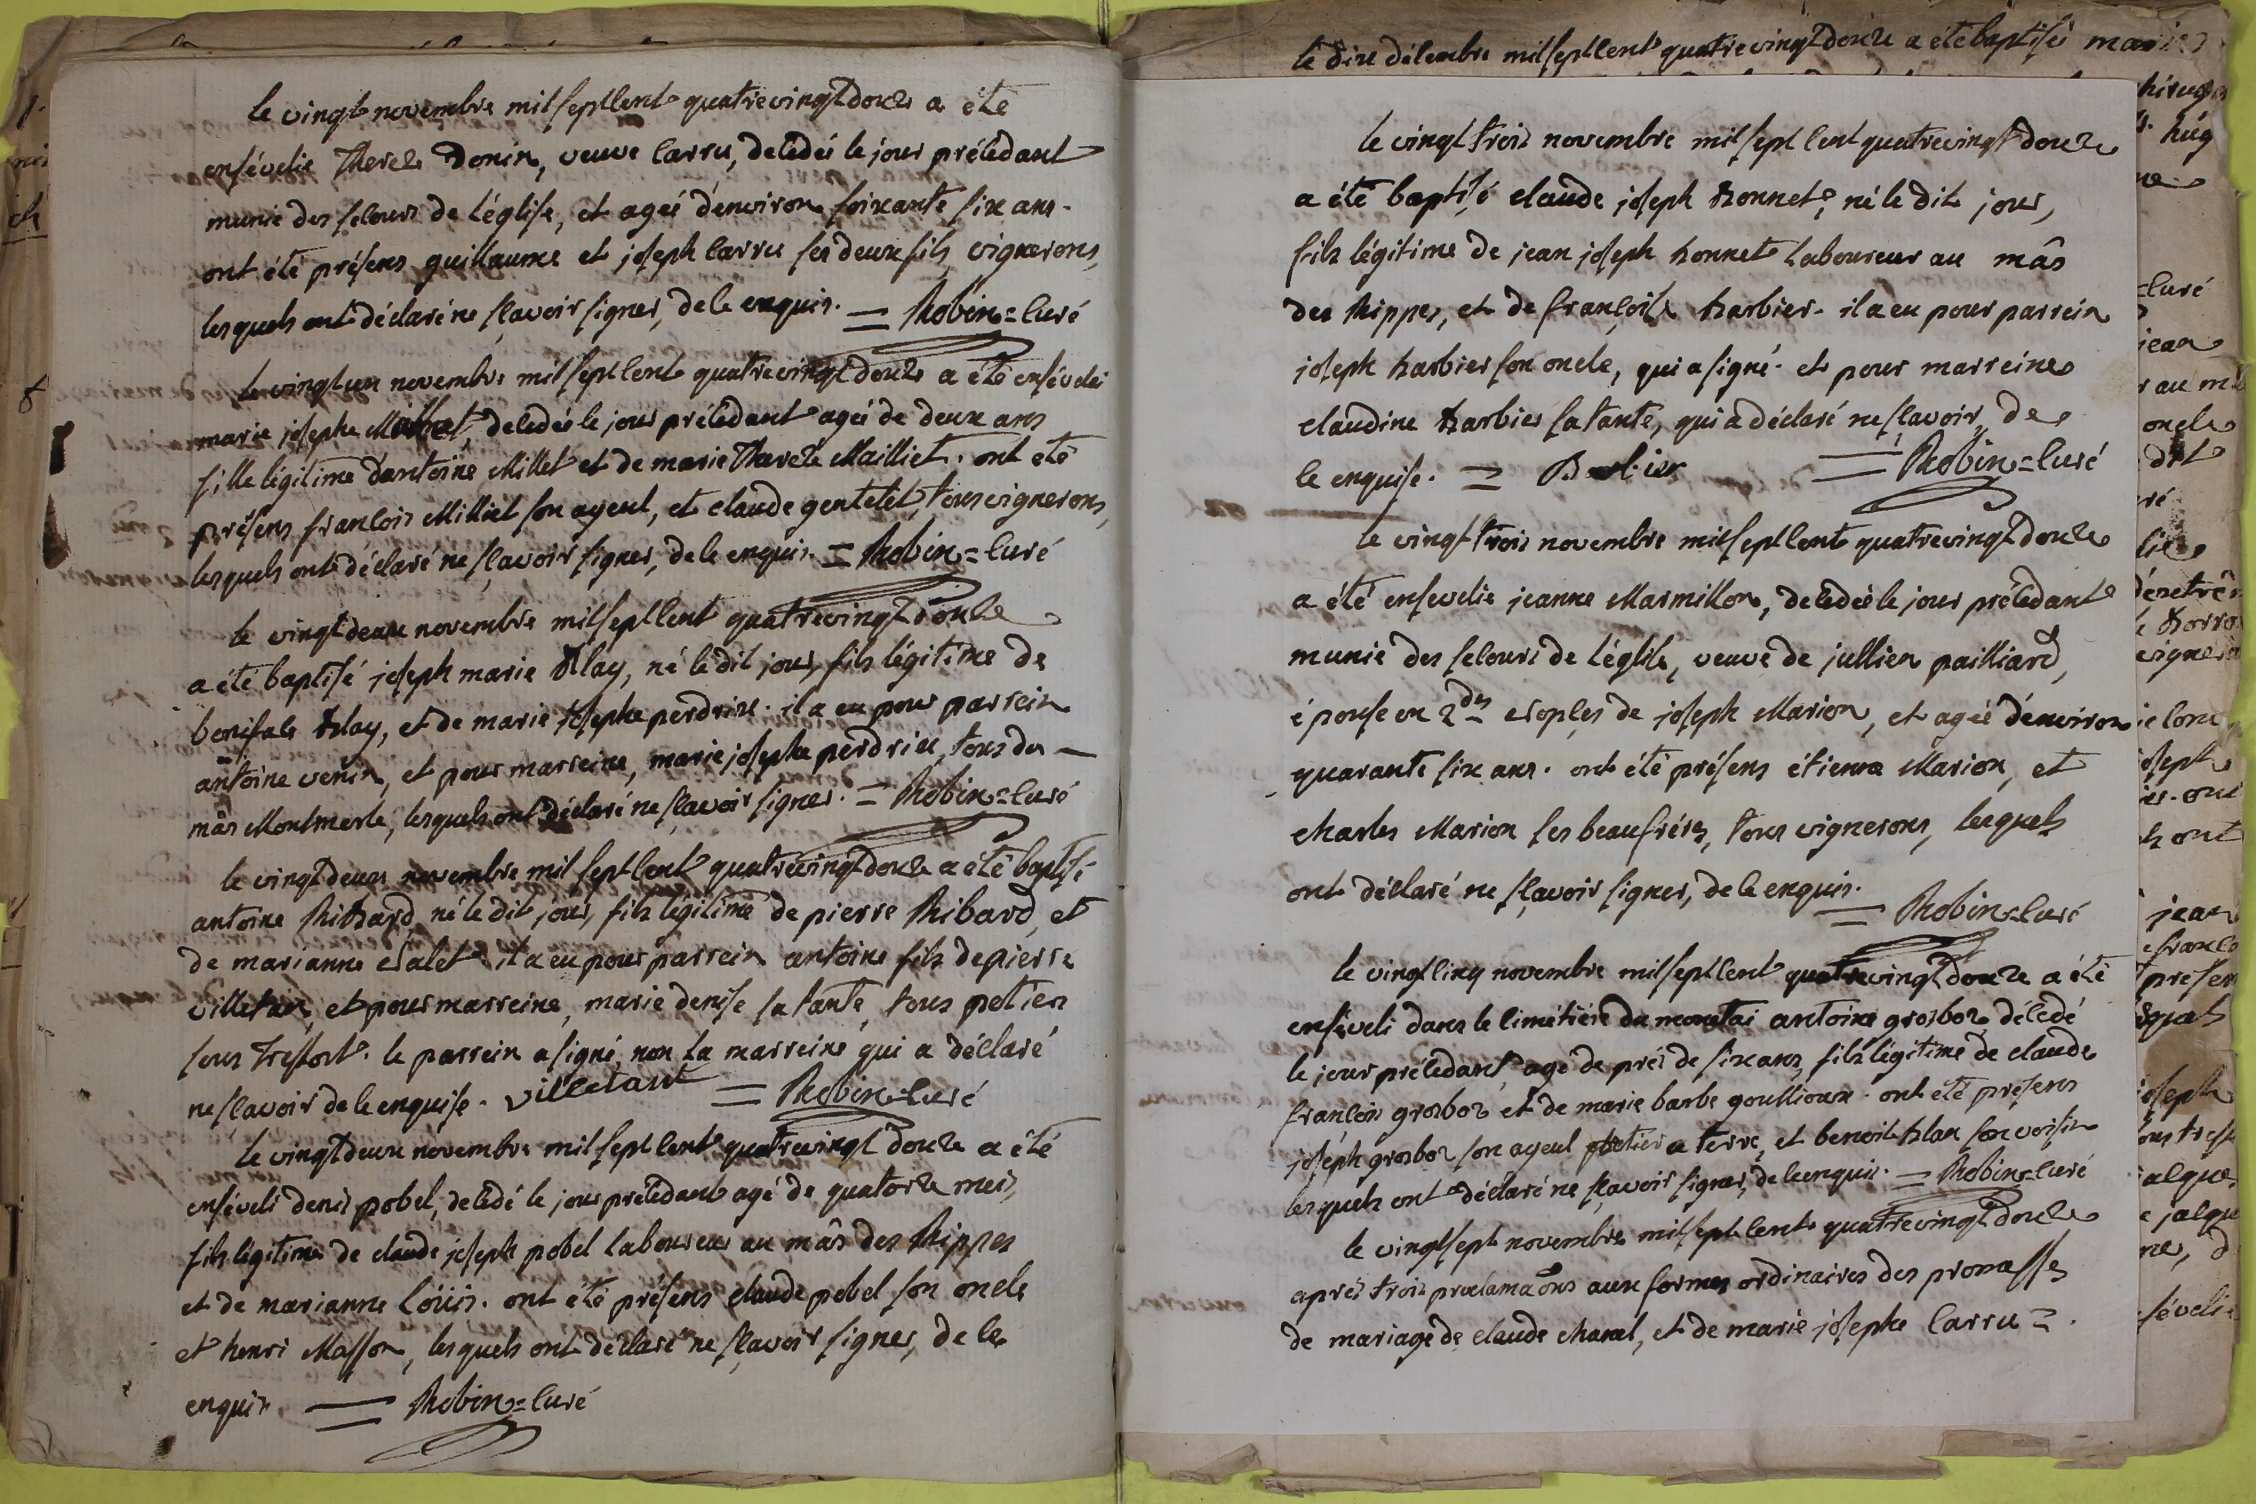 le vingt novembre mil sept cent quatrevingt douze a été
ensévelie Therese Donin, veuve Carru, décédée le jour précédant
munie des secours de l'église, et agée d'environ soixante six ans.
ont été présens guillaume et joseph Carru ses deux fils, vignerons,
lesquels ont déclaré ne sçavoir signer, de ce enquis. = Robin = Curé
le vingt un novembre mil sept cent quatrevingt douze a été ensévelie
marie josephe Millet, décédée le jour précédant agée de deux ans
fille légitime d'antoine Millet et de marie Therese Mailliet. ont été
présens françois Milliet son ayeul, et claude gentelet, tous vignerons,
lesquels ont déclaré ne sçavoir signer, de ce enquis. = Robin = Curé
le vingt deux novembre mil sept cent quatrevingt douze
a été baptisé joseph marie Blay, né le dit jour, fils légitime de
boniface Blay, et de marie josephe perdrix. il a eu pour parrein
antoine venin, et pour marreine, marie josephe perdrix, tous du
mâs Montmerle, lesquels ont déclaré ne sçavoir signer. = Robin = Curé
le vingt deux novembre mil sept cent quatrevingt douze a été baptisé
antoine Ribard, né le dit jour, fils légitime de pierre Ribard, et
de marianne Salet. il a eu pour parrein antoine fils de pierre
villetan, et pour marreine, marie denise sa tante, tous potiers
sous Treffort. le parrein a signé, non la marreine qui a déclaré
ne sçavoir de ce enquise. villetant = Robin = Curé
le vingt deux novembre mil sept cent quatrevingt douze a été
enséveli denis pobel, décédé le jour précédant agé de quatorze mois,
fils légitime de claude joseph pobel laboureur au mâs des Rippes
et de marianne Loüis. ont été présens claude pobel son oncle
et henri Masson, lesquels ont déclaré ne sçavoir signer, de ce
enquis = Robin = Curé
le dix décembre mil sept cent quatre vingt douze a été baptisé
le vingt trois novembre mil sept cent quatrevingt douze
a été baptisé claude joseph bonnet, né le dit jour,
fils légitime de jean joseph bonnet laboureur au mâs
des Rippes, et de françoise barbier. il a eu pour parrein
joseph barbier son oncle, qui a signé. et pour marreine
claudine barbier sa tante, qui a déclaré ne sçavoir, de
ce enquise. = Barbier = Robin = Curé
le vingt trois novembre mil sept cent quatrevingt douze
a été ensevelie jeanne Marmillon, décédée le jour précédant
munie des secours de l'église, veuve de jullien pailliard,
épouse en 2des nopces de joseph Marion, et agée d'environ
quarante six ans. ont été présens étienne Marion, et
charles Marion ses beaufréres, tous vignerons, lesquels
ont déclaré ne sçavoir signer, de ce enquis.
= Robin = Curé
le vingt cinq novembre mil sept cent quatrevingt douze a été
enséveli dans le cimétiére du monetai antoine grosboz décédé
le jour précédant, agé de prés de six ans, fils légitime de claude
françois grosboz et de marie barbe goullioux. ont été présens
joseph grosboz son ayeul potier a terre, et benoit blan son voisin
lesquels ont déclaré ne sçavoir signer, de ce enquis. = Robin = Curé
le vingt sept novembre mil sept cent quatrevingt douze
aprés trois proclamaôns aux formes ordinaires des promesses
de mariage de claude chanel, et de marie josephe Carru = .